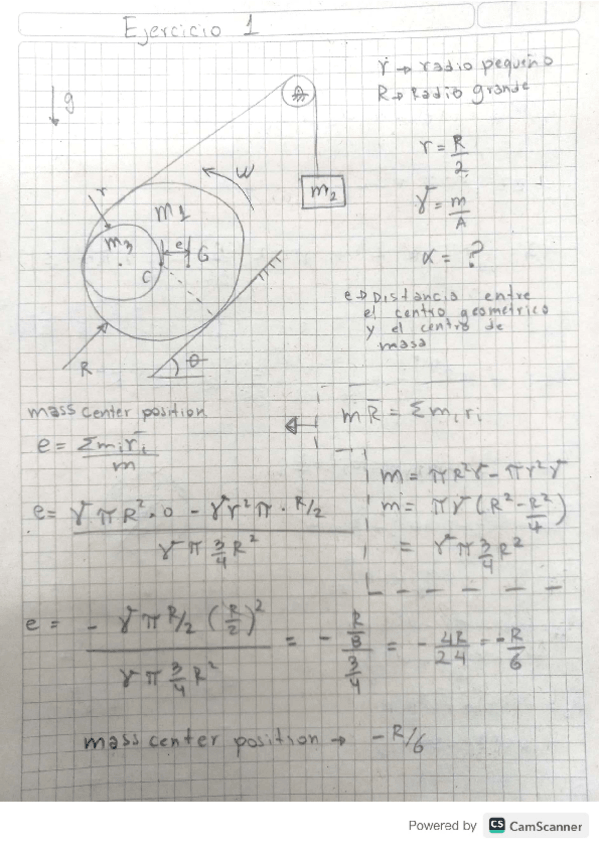 Ejercicio 1
r → radio pequeño
R → Radio grande
g
r = R/2
γ = m/A
α = ?
ω
m2
r
m1
m3
e
G
C
e → Distancia entre
el centro geometrico
y el centro de
masa
R
θ
mass center position
e = Σmi r̄i / m
m R̄ = Σ mi ri
m = πR²γ - πr²γ
m = πγ (R² - R²/4)
= γπ 3/4 R²
e = γπR²·0 - γr²π · R/2 / γπ 3/4 R²
e = - γπ R/2 (R/2)² / γπ 3/4 R² = - R/8 / 3/4 = - 4R/24 = -R/6
mass center position → -R/6
Powered by CS CamScanner